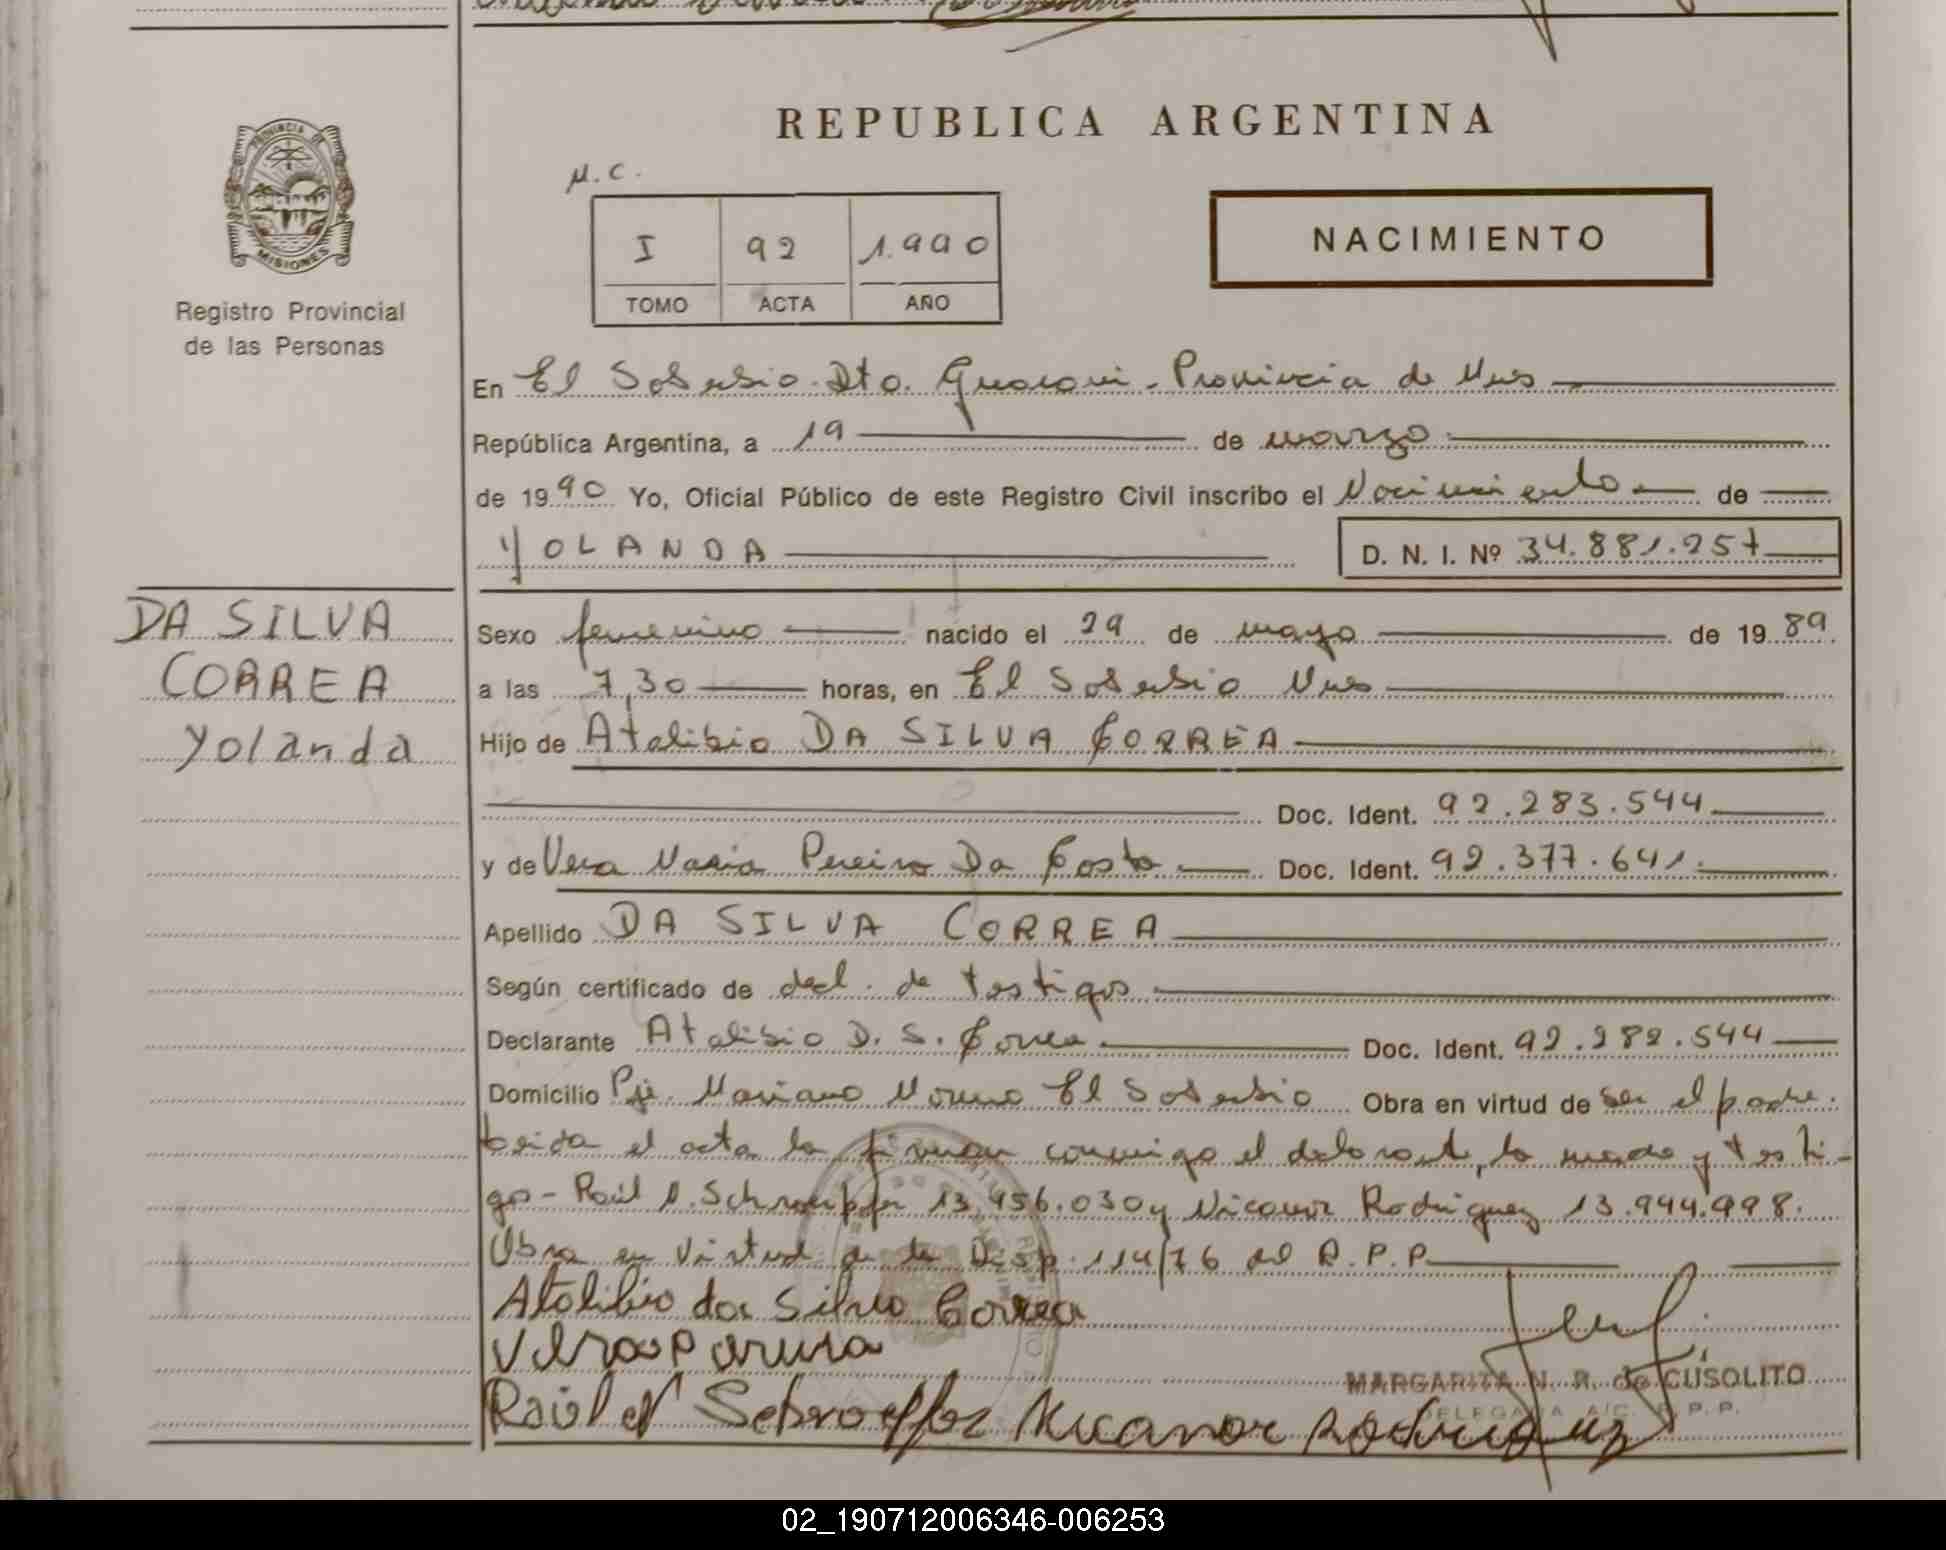 REPUBLICA ARGENTINA
PROVINCIA DE
MISIONES
Registro Provincial
de las Personas
M.C.
I 92 1.990
TOMO ACTA AÑO
NACIMIENTO
En El Soberbio. Dto. Guarani. Provincia de Mnes
República Argentina, a 19 de marzo
de 1990 Yo, Oficial Público de este Registro Civil inscribo el Nacimiento de
YOLANDA D. N. I. Nº 34.881.257
DA SILVA
CORREA
Yolanda
Sexo femenino nacido el 29 de mayo de 1989
a las 7,30 horas, en El Soberbio Mnes
Hijo de Atalibio DA SILVA CORREA
Doc. Ident. 92.283.544
y de Vera Maria Pereira Da Costa Doc. Ident. 92.377.641
Apellido DA SILVA CORREA
Según certificado de decl. de testigos
Declarante Atalibio D. S. Correa Doc. Ident. 92.282.544
Domicilio Pje. Mariano Moreno El Soberbio Obra en virtud de ser el padre.
Leida el acta la firman conmigo el declarante, la madre y testi-
gos - Raúl N. Schroepfer 13.456.030 y Nicanor Rodriguez 13.944.998.
Obra en virtud de la Disp. 114/76 del R.P.P.
Atalibio da Silva Correa
Raúl N Schroepfer Nicanor Rodriguez
MARGARITA N. R. de CUSOLITO
DELEGADA A/C. R. P. P.
02_190712006346-006253